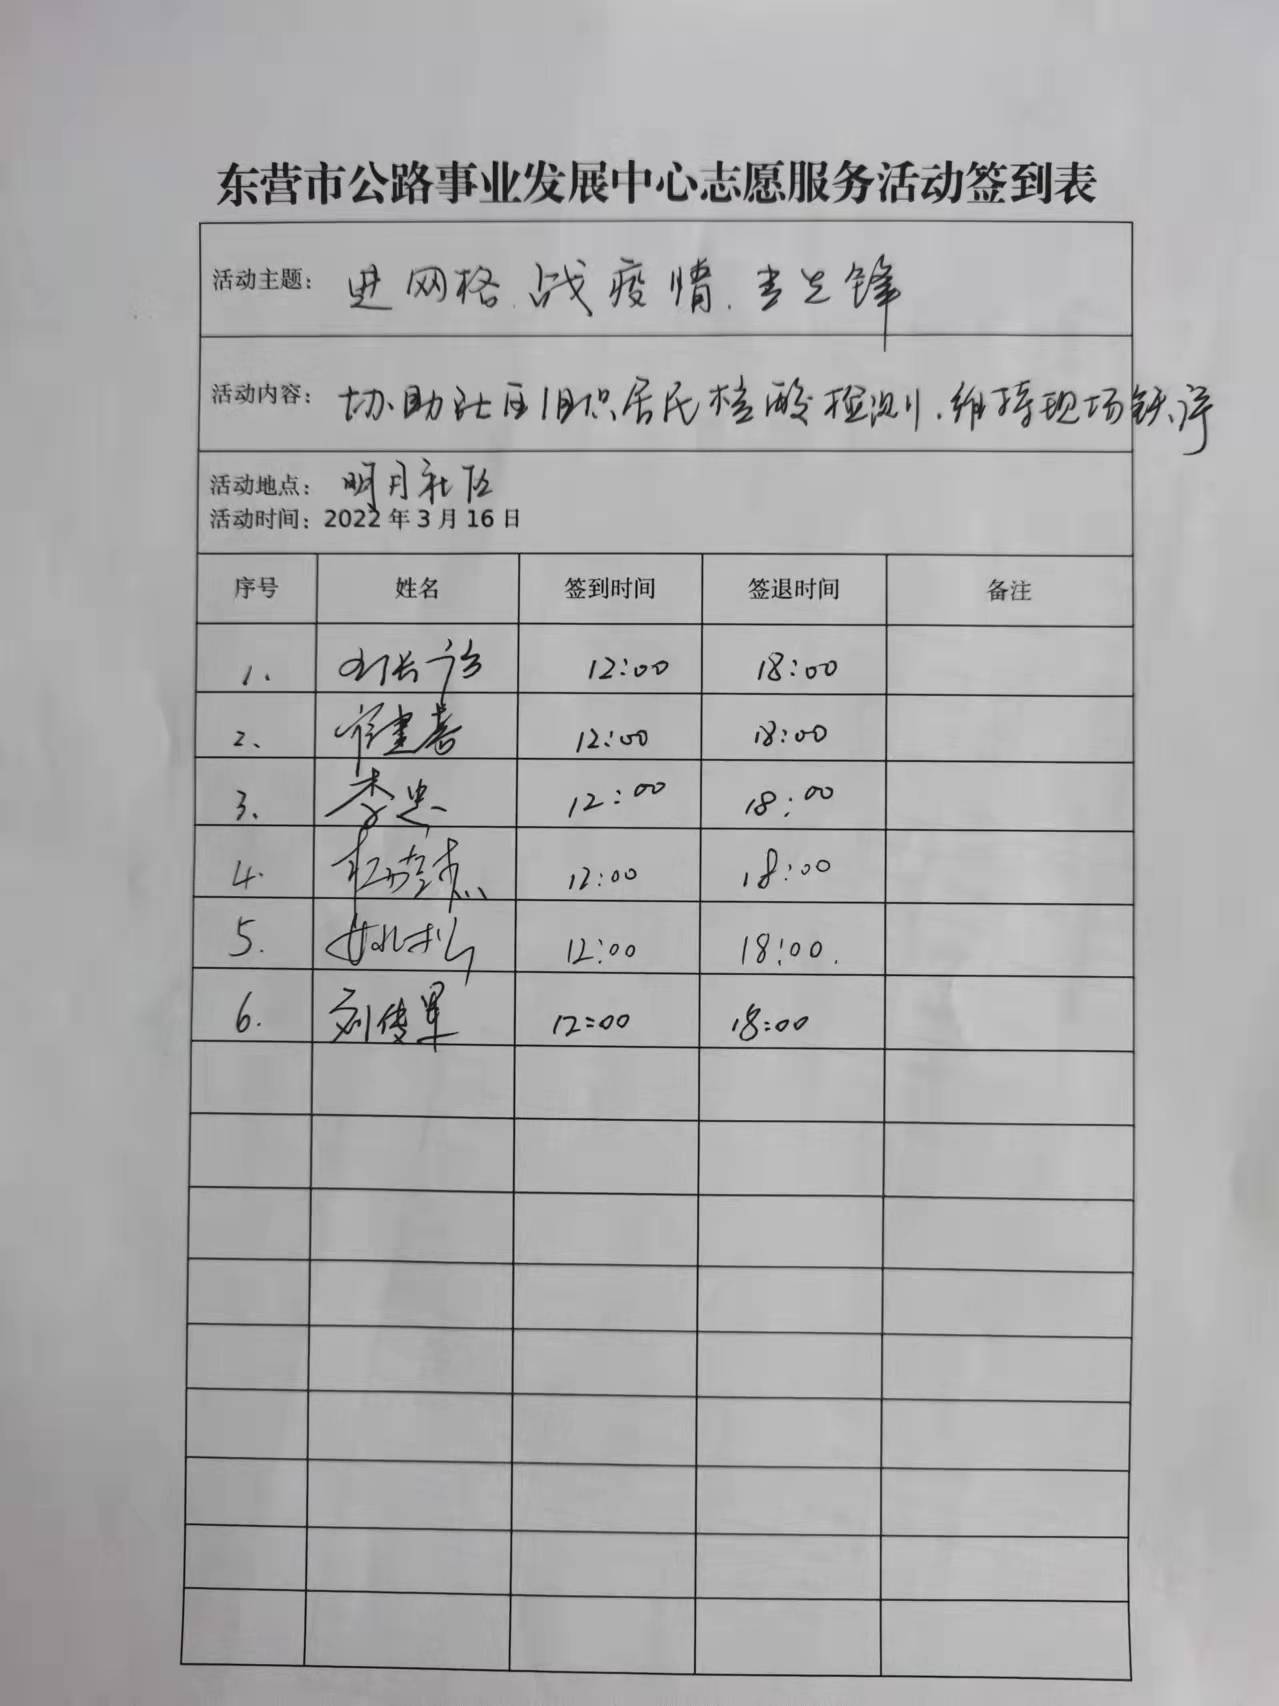 东营市公路事业发展中心志愿服务活动签到表
活动主题：进网格、战疫情、当先锋
活动内容：协助社区组织居民核酸检测、维持现场秩序
活动地点：明月社区
活动时间：2022年3月16日
序号 姓名 签到时间 签退时间 备注
1. 12:00 18:00
2、 12:00 18:00
3、李忠 12:00 18:00
4. 12:00 18:00
5. 12:00 18:00.
6. 刘传军 12:00 18:00